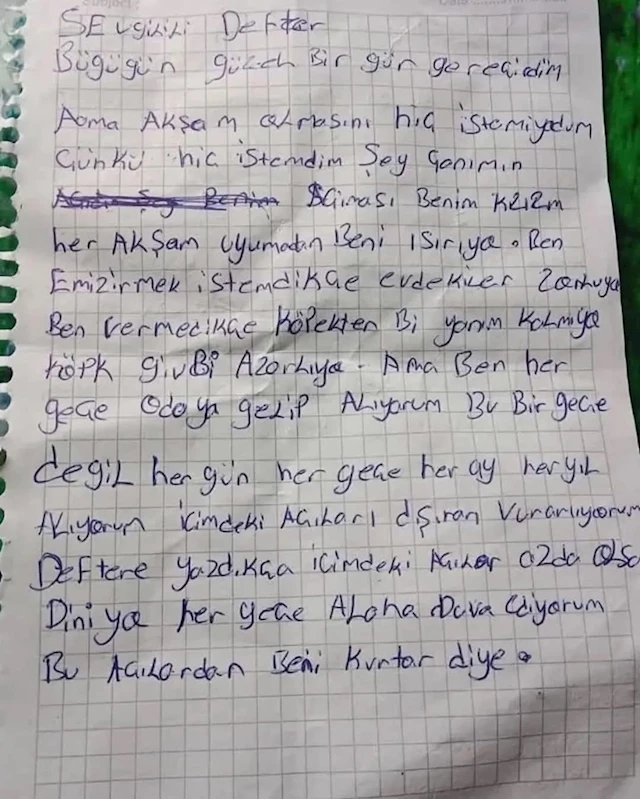 SEvgililİ Defter
Bügügün güzel Bir gün geregidim
Aama Akşam olmasını hiç istemiyodum
Çünkü hiç istemdim Şey Canımın
Benim Kızım
her Akşam uyumadan Beni ısırıya. Ben
Emizirmek istemdikçe evdekiler Zorluya
Ben vermedikçe Köpekten Bi yanım Kalmiya
Köpk givBi Azorlıya. Ama Ben her
gece Odaya gelip Alıyorum Bu Bir gece
degil her gün her gece her ay her yıl
Alıyorum içimdeki Acıları dışıran Vurarlıyorum
Deftere yazdıkça içimdeki Acılar azda Olsa
Dini ya her gece Aloha Dava Ediyorum
Bu Acılardan Beni Kurtar diye.